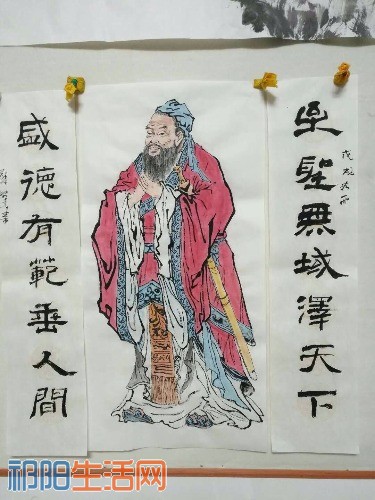 至聖無域澤天下
盛德有範垂人間
祁阳生活网